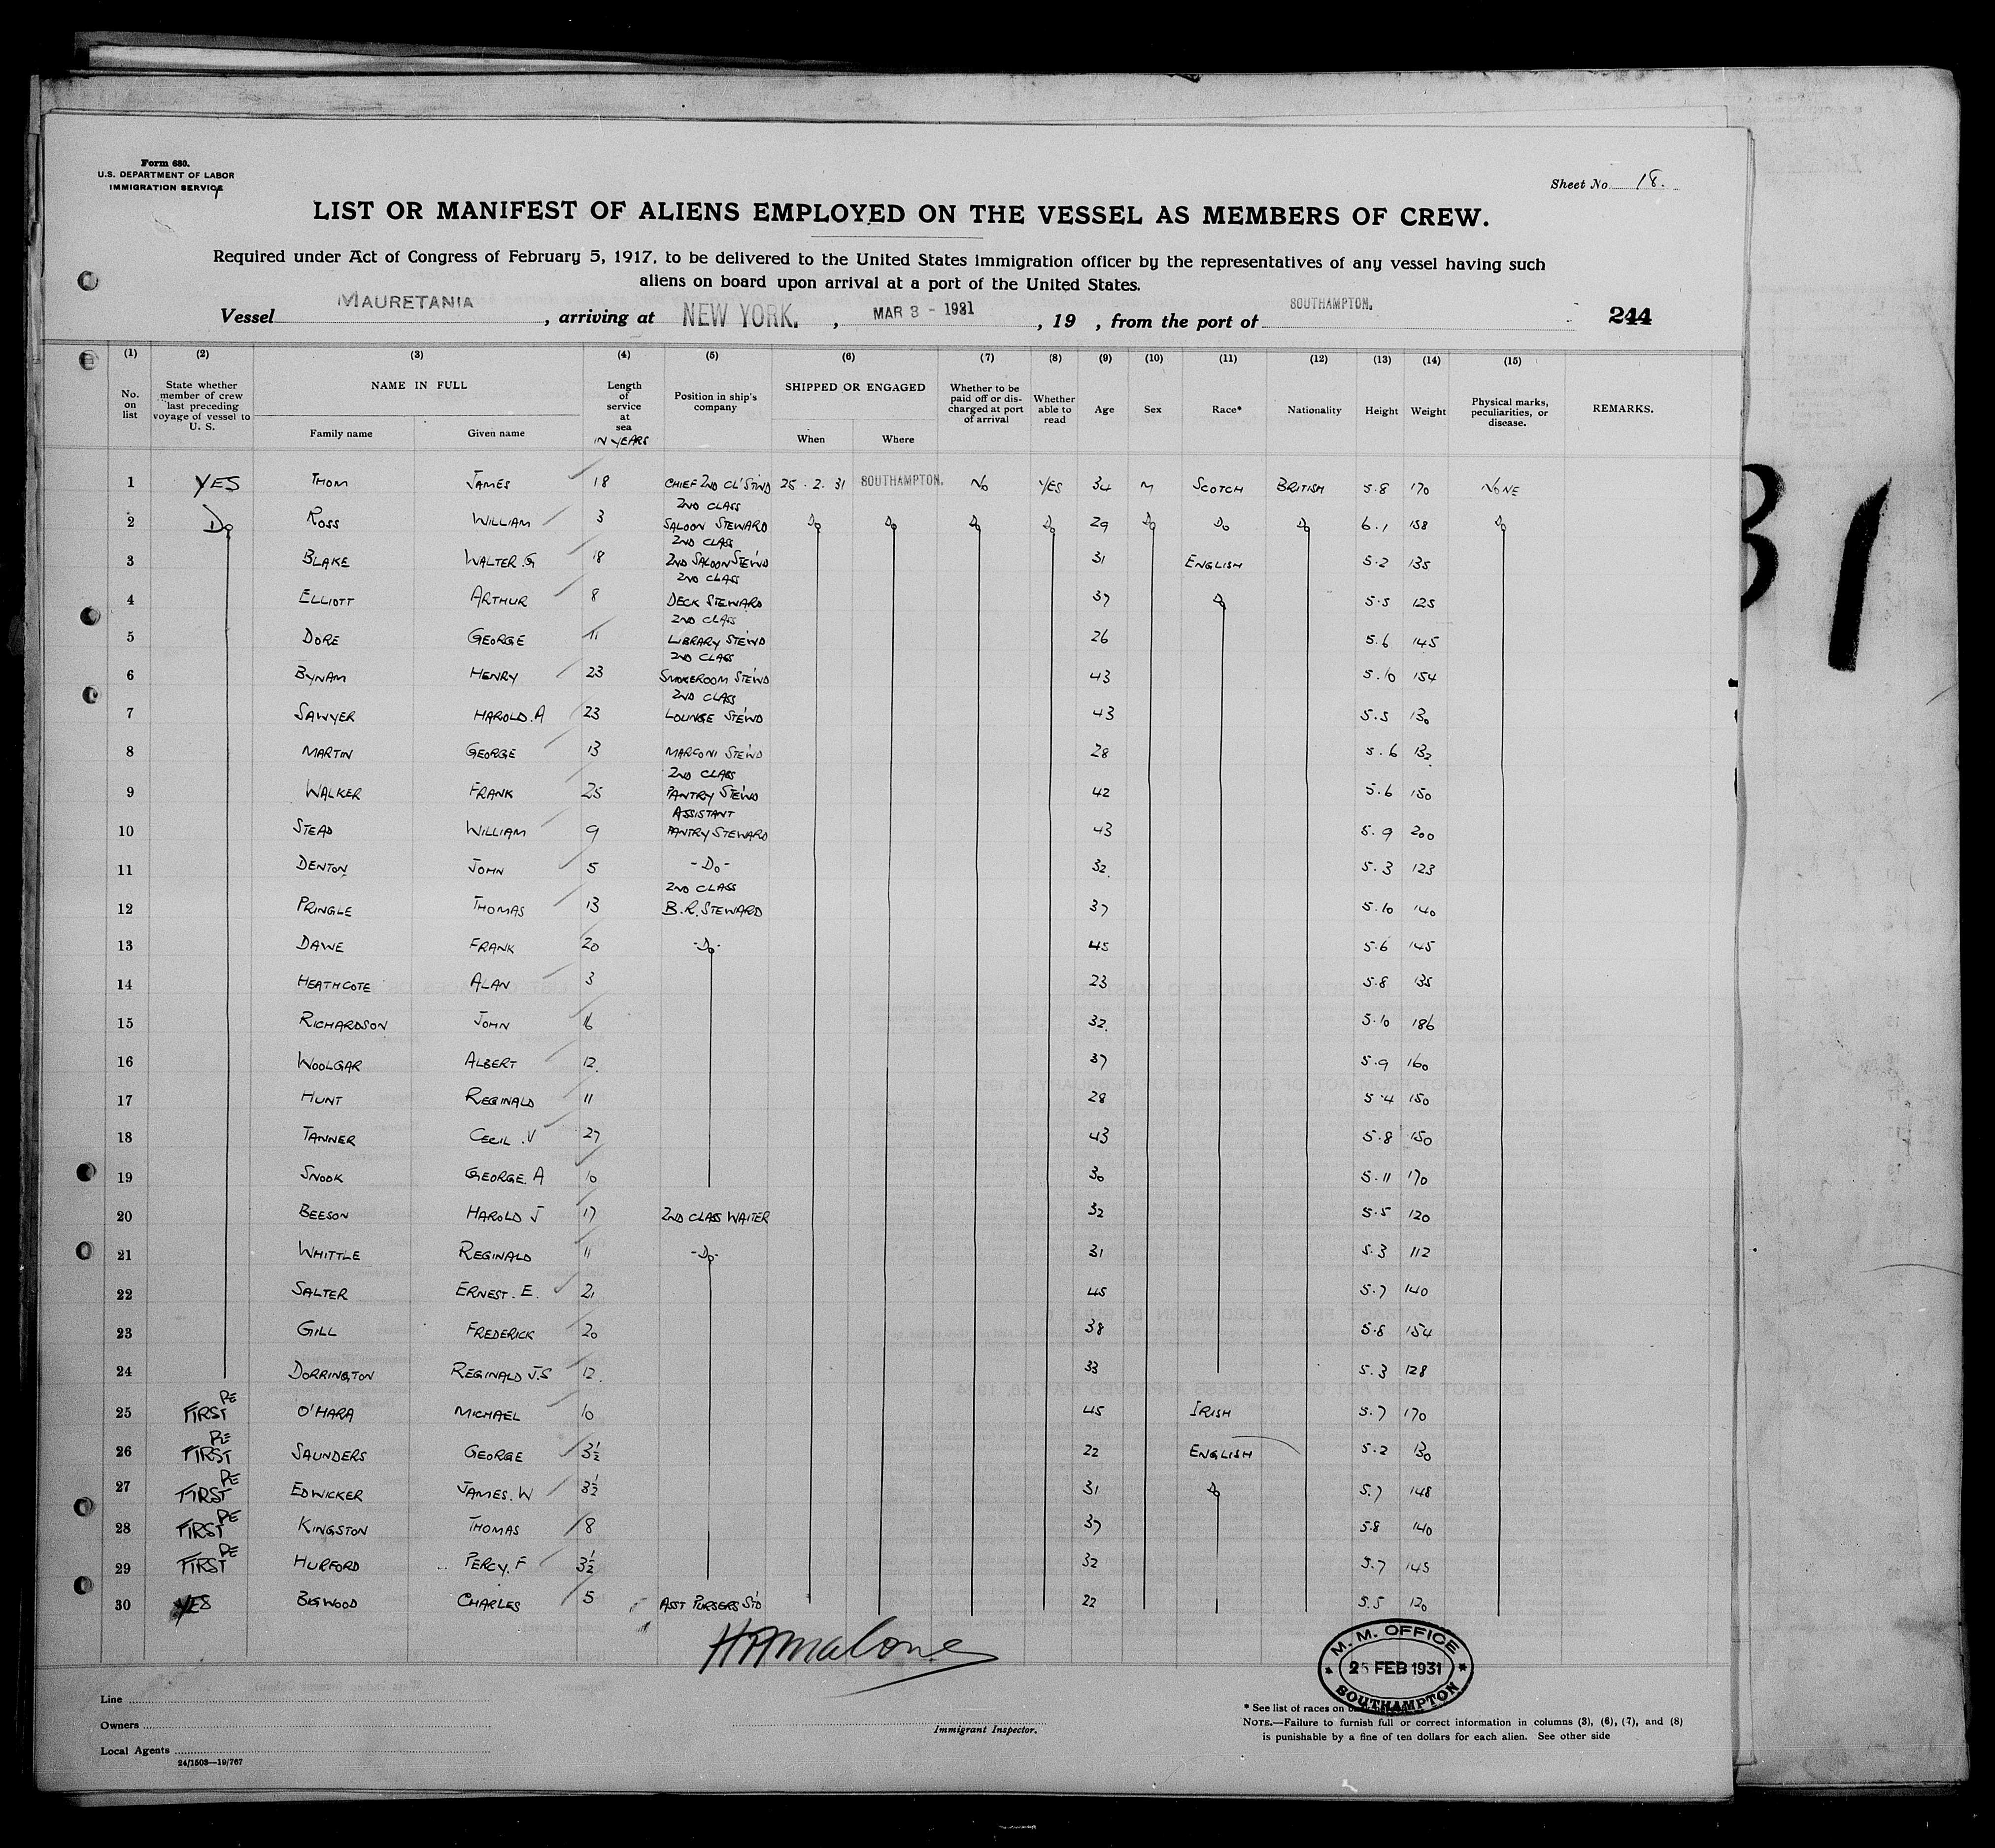 Form 680.
U.S. DEPARTMENT OF LABOR
IMMIGRATION SERVICE
Sheet No. 18.
LIST OR MANIFEST OF ALIENS EMPLOYED ON THE VESSEL AS MEMBERS OF CREW.
Required under Act of Congress of February 5, 1917, to be delivered to the United States immigration officer by the representatives of any vessel having such
aliens on board upon arrival at a port of the United States.
Vessel MAURETANIA, arriving at NEW YORK., MAR 3 - 1931, 19 , from the port of SOUTHAMPTON. 244
(1) (2) (3) (4) (5) (6) (7) (8) (9) (10) (11) (12) (13) (14) (15)
No. on list State whether member of crew last preceding voyage of vessel to U. S. NAME IN FULL Family name Given name Length of service at sea IN YEARS Position in ship's company SHIPPED OR ENGAGED When Where Whether to be paid off or discharged at port of arrival Whether able to read Age Sex Race* Nationality Height Weight Physical marks, peculiarities, or disease. REMARKS.
1 YES THOM JAMES 18 CHIEF 2ND CL'STWD 25.2.31 SOUTHAMPTON. NO YES 34 M SCOTCH BRITISH 5.8 170 NONE
2 Do ROSS WILLIAM 3 2ND CLASS SALOON STEWARD Do Do Do Do 29 Do Do Do 6.1 158 Do
3 BLAKE WALTER.G 18 2ND CLASS 2ND SALOON STEWD 31 ENGLISH 5.2 135
4 ELLIOTT ARTHUR 8 2ND CLASS DECK STEWARD 37 Do 5.5 125
5 DORE GEORGE 11 2ND CLASS LIBRARY STEWD 26 5.6 145
6 BYNAM HENRY 23 2ND CLASS SMOKEROOM STEWD 43 5.10 154
7 SAWYER HAROLD.A 23 2ND CLASS LOUNGE STEWD 43 5.5 130
8 MARTIN GEORGE 13 MARCONI STEWD 28 5.6 132
9 WALKER FRANK 25 2ND CLASS PANTRY STEWD 42 5.6 150
10 STEAD WILLIAM 9 ASSISTANT PANTRY STEWARD 43 5.9 200
11 DENTON JOHN 5 -Do- 32 5.3 123
12 PRINGLE THOMAS 13 2ND CLASS B.R. STEWARD 37 5.10 140
13 DAWE FRANK 20 -Do- 45 5.6 145
14 HEATHCOTE ALAN 3 23 5.8 135
15 RICHARDSON JOHN 16 32 5.10 186
16 WOOLGAR ALBERT 12 37 5.9 160
17 HUNT REGINALD 11 28 5.4 150
18 TANNER CECIL.V 27 43 5.8 150
19 SNOOK GEORGE.A 10 30 5.11 170
20 BEESON HAROLD J 17 2ND CLASS WAITER 32 5.5 120
21 WHITTLE REGINALD 11 -Do- 31 5.3 112
22 SALTER ERNEST.E. 21 45 5.7 140
23 GILL FREDERICK 20 38 5.8 154
24 DORRINGTON REGINALD J.S 12 33 5.3 128
25 FIRST RE O'HARA MICHAEL 10 45 IRISH 5.7 170
26 FIRST RE SAUNDERS GEORGE 3½ 22 ENGLISH 5.2 130
27 FIRST RE EDWICKER JAMES.W 3½ 31 Do 5.7 148
28 FIRST RE KINGSTON THOMAS 8 37 5.8 140
29 FIRST RE HURFORD PERCY.F 3½ 32 5.7 145
30 YES BIGWOOD CHARLES 5 ASST PURSERS STD 22 5.5 120
HAMalone
M. M. OFFICE
25 FEB 1931
SOUTHAMPTON
Line
Owners
Local Agents
24/1503—19/767
Immigrant Inspector.
* See list of races on
NOTE.—Failure to furnish full or correct information in columns (3), (6), (7), and (8)
is punishable by a fine of ten dollars for each alien. See other side
31